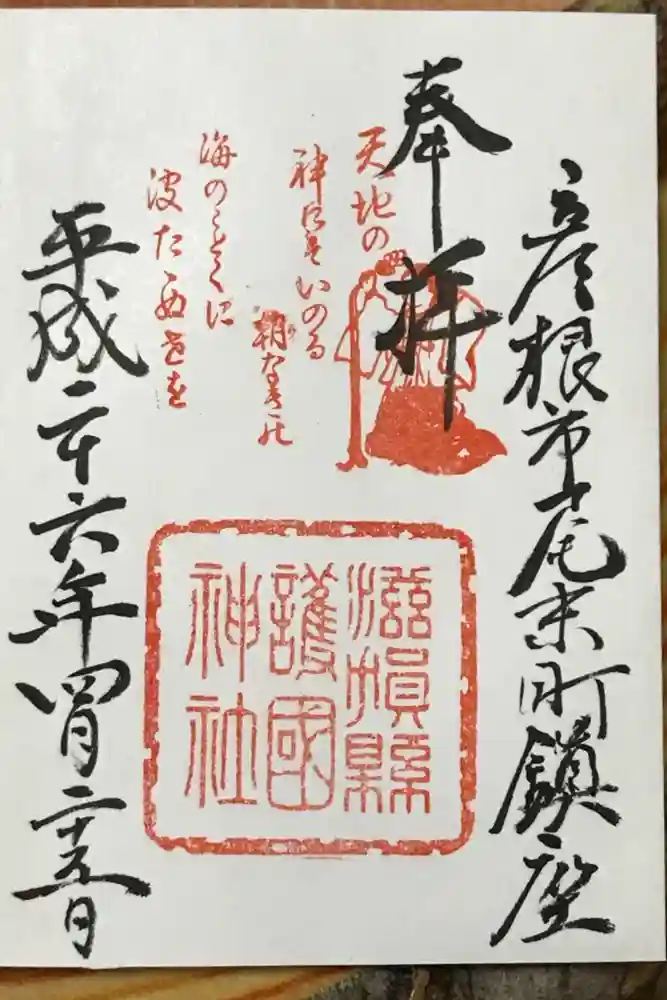 彦根市尾末町鎮座
奉拝
天地の
神にそいのる
朝なきの
海のことくに
波たゝぬ世を
滋賀縣
護國
神社
平成二十六年四月二十五日